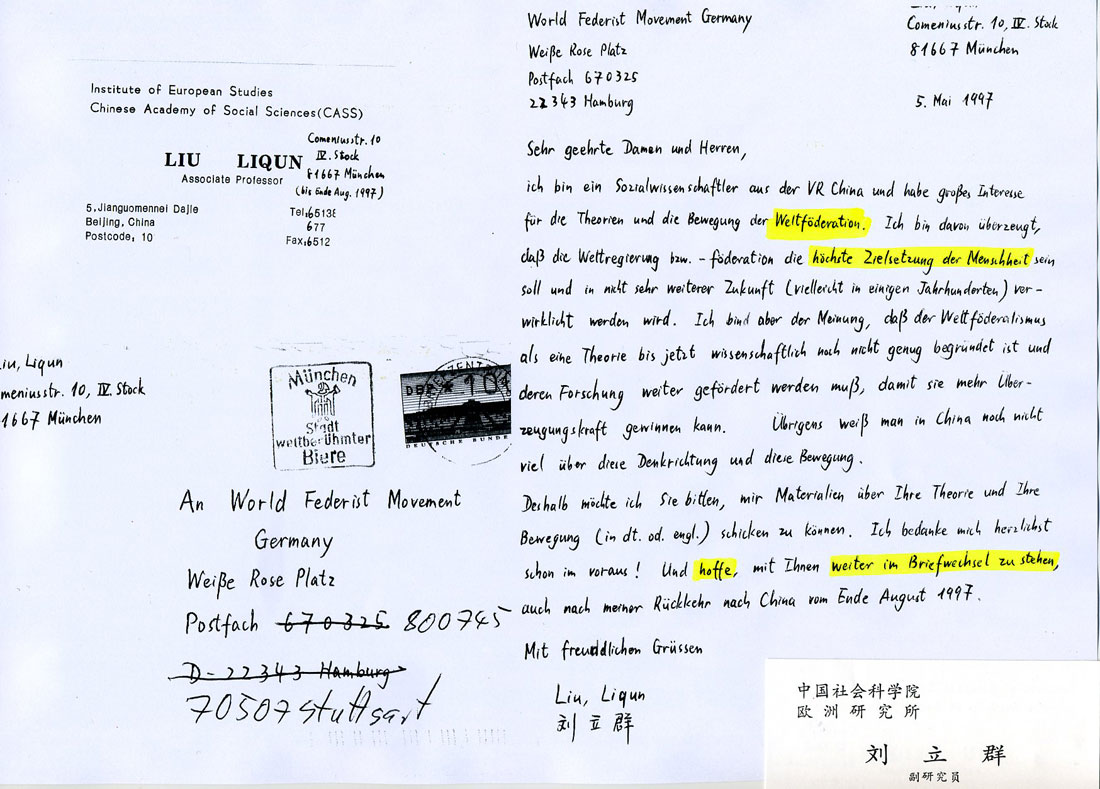 Institute of European Studies
Chinese Academy of Social Sciences (CASS)
LIU LIQUN
Associate Professor
Comeniusstr. 10
IV. Stock
81667 München
(bis Ende Aug. 1997)
5,Jianguomennei Dajie
Beijing, China
Postcode: 10
Tel:65138
677
Fax:6512
Liqun
Comeniusstr. 10, IV. Stock
81667 München
5. Mai 1997
World Federist Movement Germany
Weiße Rose Platz
Postfach 670325
22343 Hamburg
Sehr geehrte Damen und Herren,
ich bin ein Sozialwissenschaftler aus der VR China und habe großes Interesse
für die Theorien und die Bewegung der Weltföderation. Ich bin davon überzeugt,
daß die Weltregierung bzw. -föderation die höchste Zielsetzung der Menschheit sein
soll und in nicht sehr weiterer Zukunft (vielleicht in einigen Jahrhunderten) ver-
wirklicht werden wird. Ich bind aber der Meinung, daß der Weltföderalismus
als eine Theorie bis jetzt wissenschaftlich noch nicht genug begründet ist und
deren Forschung weiter gefördert werden muß, damit sie mehr Über-
zeugungskraft gewinnen kann. Übrigens weiß man in China noch nicht
viel über diese Denkrichtung und diese Bewegung.
Deshalb möchte ich Sie bitten, mir Materialien über Ihre Theorie und Ihre
Bewegung (in dt. od. engl.) schicken zu können. Ich bedanke mich herzlichst
schon im voraus! Und hoffe, mit Ihnen weiter im Briefwechsel zu stehen,
auch nach meiner Rückkehr nach China vom Ende August 1997.
Mit freundlichen Grüssen
Liu, Liqun
刘立群
iu, Liqun
meniusstr. 10, IV. Stock
1667 München
München
Stadt
weltberühmter
Biere
DBP * 10
DEUTSCHE BUNDE
An World Federist Movement
Germany
Weiße Rose Platz
Postfach 670325 800745
D-22343 Hamburg
70507 Stuttgart
中国社会科学院
欧洲研究所
刘立群
副研究员